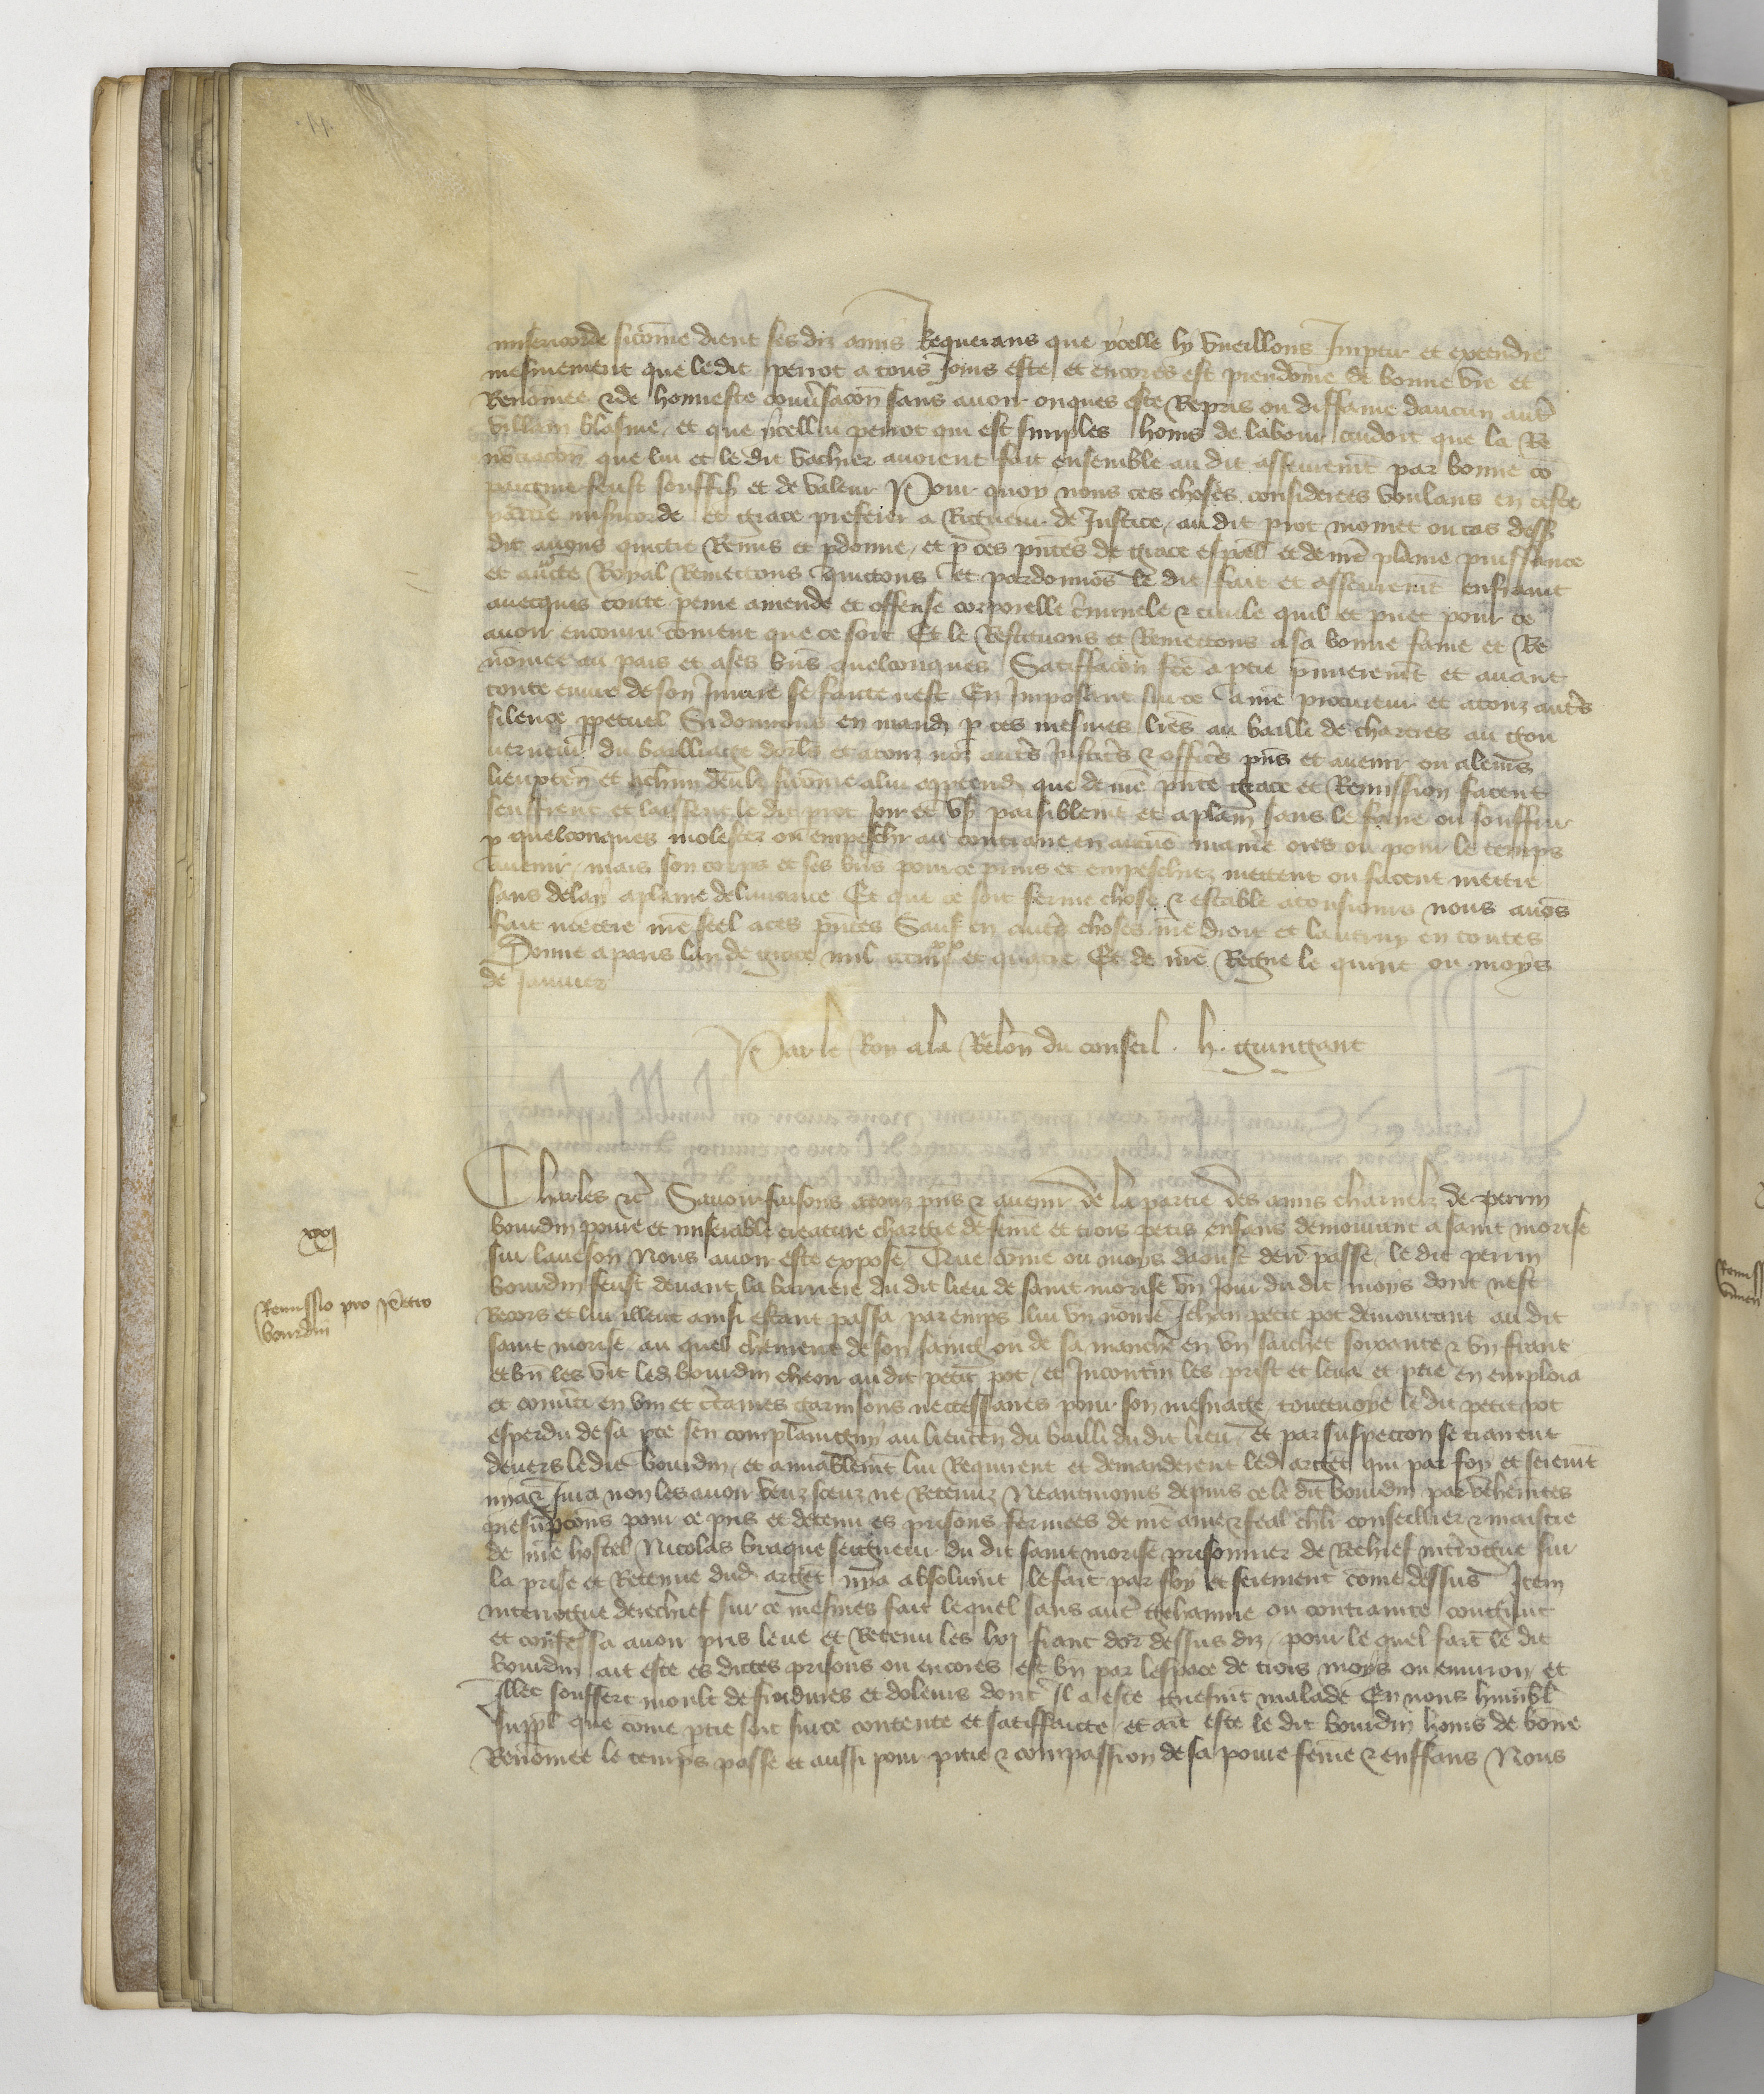 misericorde sicōme dient ses diz amis Requerans que ycelle ly vueillons Impetir et extendre
mesmement que ledit perrot a touſ Jours este et encores est preudome de bonne vie et
Renōmee & de honneste conūsacōn sans auoir onques este Repris ou diffame daucun autr̄
villain blasme, et que ycellui perrot qui est simples homs de labour cuidoit que la Re
nōciacōn que lui et le dit vachier auoient fait ensemble au dit asseuremt par bonne cō
feust souffis et de valeur Pour quoy nous ces choses considerees voulans en ceste
partie misicorde et grace preferer a Rigueur de Justice, au dit prot ou cas dess
dit auons quictie Remis et pdonne, et p ces pn̄tes de grace espāl et de n̄re plaine puissance
et aucte Royal Remettons quictons et pardonnōs le dit fait et asseuremt enfraint
auecques toute peine amende et offense corporelle c̄minele & ciuile quil et puet pour ce
auoir encouru cōment que ce soit Et le Restituons et Remettons a sa bonne fame et Re
nōmee au pais et a ses biēs quelconques Satiffacōn fc̄e a ptie p̄mieremt et auant
toute euure de son Jniure se faite nest En Imposant sur ce a n̄re procureur et a touz autr̄s
silence ppetuel Si donnons en mand p ces mesmes lr̄es au bailli de chartres au gou
uerneur du bailliage dorls et a touz noz autr̄s Justic̄rs & offic̄rs pn̄s et auenir ou a leurs
lieuxten̄ et a chun deulx sicōme a lui apptendr que de n̄re pn̄te grace et Remission facent
seuffrent et laissent le dit prot Joir et vs̄ paisiblemt et a plain sans le faire ou souffrir
p quelconques molester ou empeschr au contraire en aucūe manie ores ou pour le temps
auenir, mais son corps et ses biēs pour ce prins et empeschiez mettent ou facent mettre
sans delay a plaine deliurance Et que ce soit ferme chose & estable a tousiours nous auōs
fait mettre n̄re seel a ces pn̄tes Sauf en autr̄s choses n̄re droit et lautruy en toutes
Donne a paris lan de grace mil et quatre Et de n̄re Regne le quint ou moys
de Januier
Par le Roy a la Relōn du conseil . h. guingant
Charles &c̄ Sauoir faisons a touz pn̄s & auenir de la partie des amis charnelz de perrin
bourdin poure et miserable creature chargie de fēme et trois petis enfans demourant a saint morise
sur laueson Nous auoir este expose Que cōme ou moys daoust derr̄ passe, le dit perrin
bourdin feust deuant la barriere du dit lieu de saint morise vn Jour du dit moys dont nest
Recors et lui illeuc ainsi estant passa par emps lui vn nōme Jehan petit pot demourant au dit
saint morise au quel cheirent de son saing ou de sa manche en vn sachet soixante & vn frant
et biē les vit led bourdin cheoir au dit petit pot, et Incontin̄ les prist et leua et ptie en emploia
et conūti en vin et c̄taines garnisons necessaires pour son mesnage touteuoye le dit petit pot
esperdu de sa pte sen complaingny au lieuten̄ du bailli du dit lieu, et par suspeccon se trairent
deuers ledit bourdin, et amiablemt lui Requirent et demanderent led argēt qui par foy et seremt
nya & Jura non les auoir veuz sceuz ne Retenuz Neantmoins depuis ce le dit bourdin par vehemtes
presūpcons pour ce pris et detenu es prisons fermees de n̄re ame & feal chlr conseillier & maistre
de n̄re hostel Nicolas braque seigneur du dit saint morise prisonnier de Rechief int̄rogue sur
la prise et Retenue dud argēt nya absolumt le fait par foy et serement cōme dessus Item
interrogue derechief sur ce mesmes fait lequel sans autr̄ gehainne ou contrainte congnut
et confessa auoir pris leue et Retenu les lxj frant dor dessus diz, pour le quel fait le dit
bourdin ait este es dictes prisons ou encores est biē par lespace de trois moys ou enuiron et
Illec souffert moult de froidures et doleurs dont il a este grefmt malade En nous humbl
suppl que cōme ptie soit sur ce contente et satiffaicte et ait este le dit bourdin homs de bōne
Renōmee le temps passe et aussi pour pitie & compassion de sa poure fēme & enffans Nous
xxj
Remissio pro Petro
bourdin